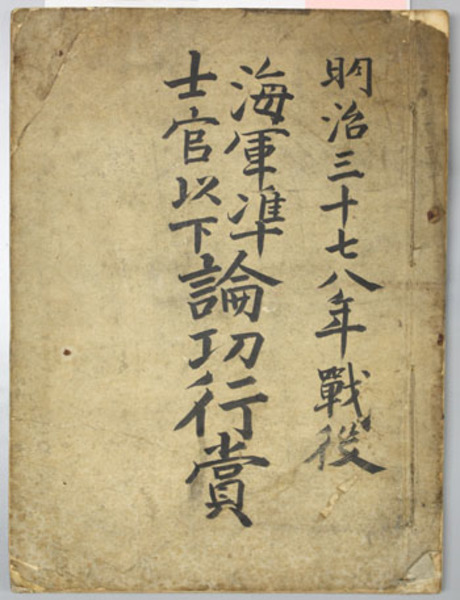 明治三十七八年戰役
海軍準士官以下論功行賞